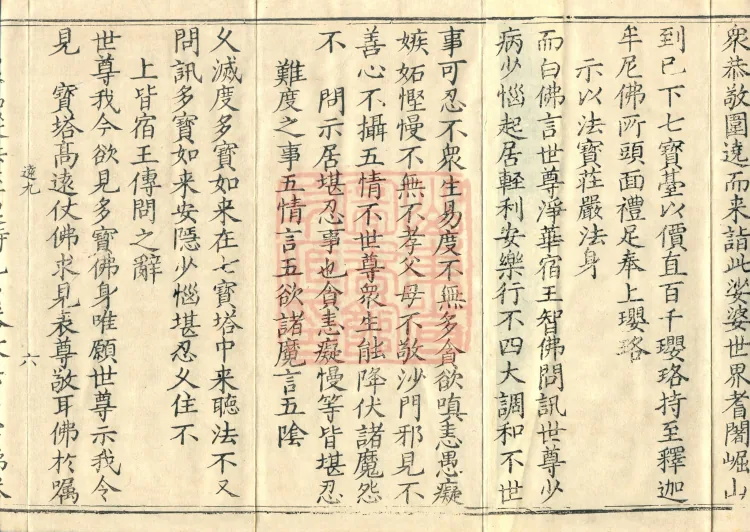 衆恭敬圍遶而来詣此娑婆世界耆闍崛山
到已下七寶臺以價直百千瓔珞持至釋迦
牟尼佛所頭面禮足奉上瓔珞
示以法寶莊嚴法身
而白佛言世尊淨華宿王智佛問訊世尊少
病少惱起居輕利安樂行不四大調和不世
事可忍不衆生易度不無多貪欲嗔恚愚癡
嫉妬慳慢不無不孝父母不敬沙門邪見不
善心不攝五情不世尊衆生能降伏諸魔怨
不 問示居堪忍事也貪恚癡慢等皆堪忍
難度之事五情言五欲諸魔言五陰
久滅度多寶如来在七寶塔中来聽法不又
問訊多寶如来安隱少惱堪忍久住不
上皆宿王傳問之辭
世尊我今欲見多寶佛身唯願世尊示我令
見 寶塔髙遠仗佛求見表尊敬耳佛於囑
遠九
六